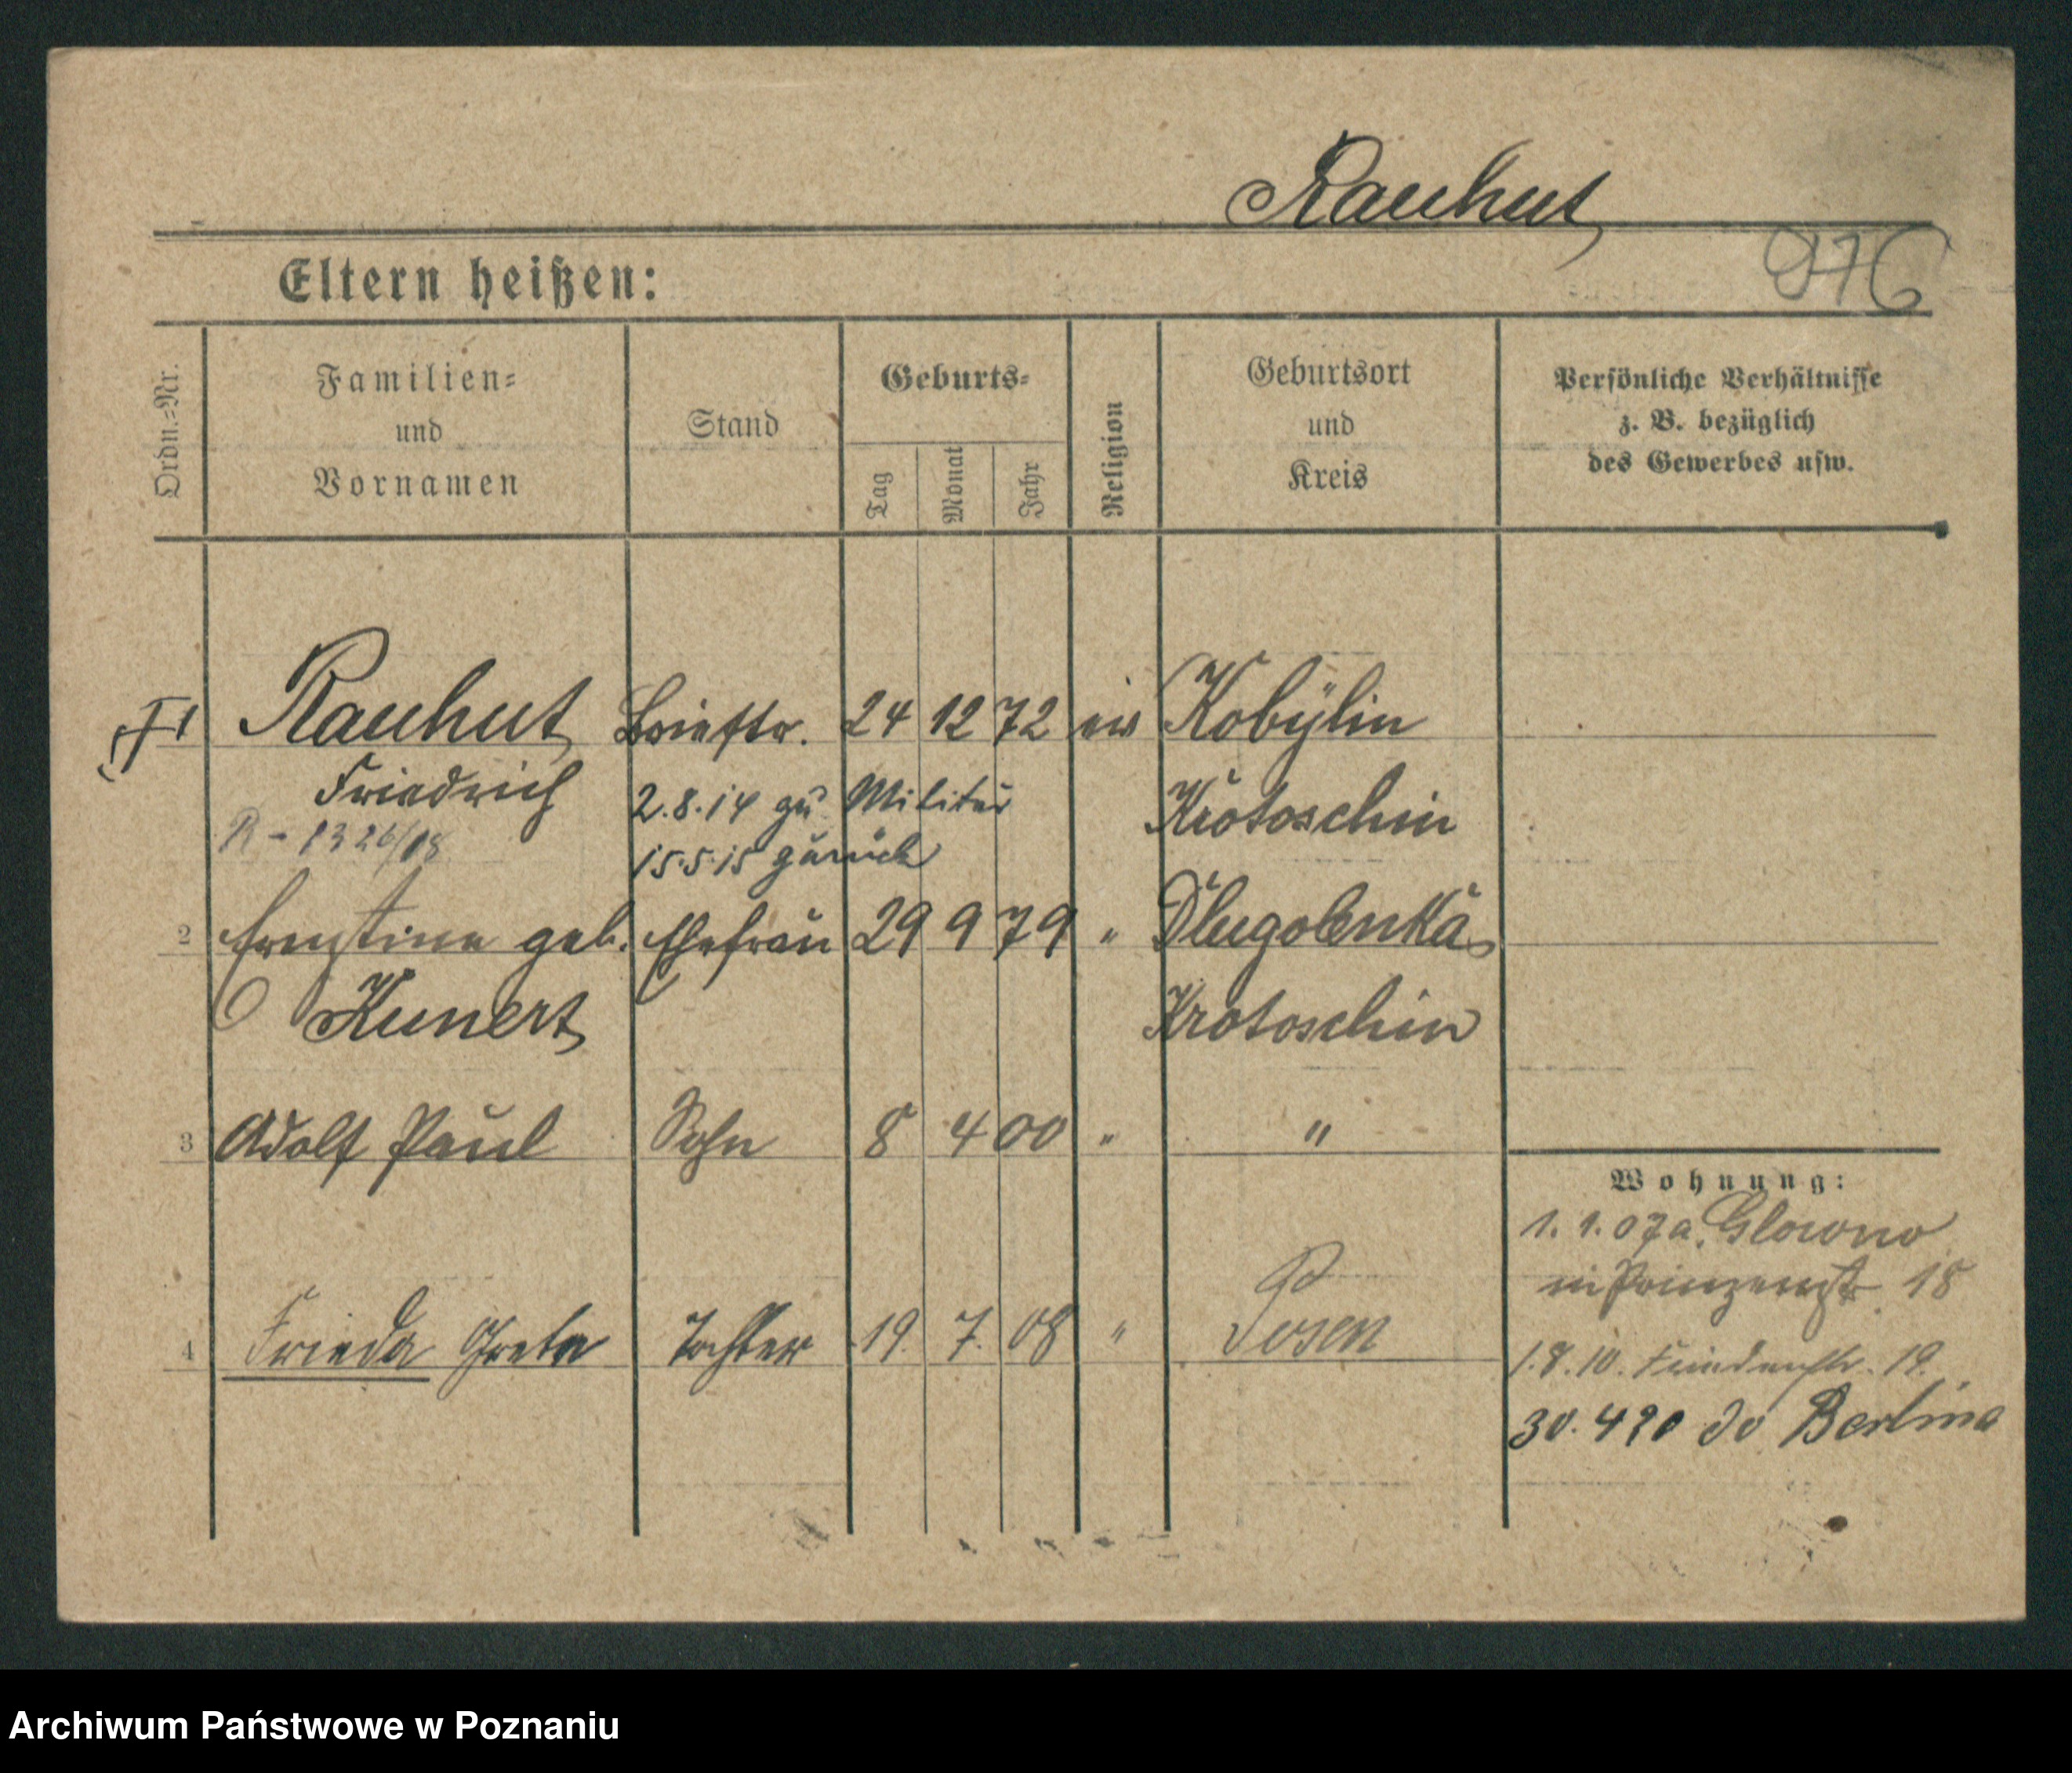 Rauhut
976
Eltern heißen:
Ordn.=Nr.
Familien=
und
Vornamen
Stand
Geburts=
Tag
Monat
Jahr
Religion
Geburtsort
und
Kreis
Persönliche Verhältnisse
z. B. bezüglich
des Gewerbes usw.
1 Rauhut Brieftr. 24 12 72 ev Kobylin
Friedrich 2.8.14 zu Militär Krotoschin
R - 1326/08 15.5.15 zurück
2 Ernstine geb. Ehefrau 29 9 79 " Dlugolenka
Kunert Krotoschin
3 Adolf Paul Sohn 8 4 00 " "
4 Frieda Greta Tochter 19. 7. 08 " Posen
Wohnung:
1. 1. 07 a. Glowno
Prinzenstr. 18
1.8.10. Friedenstr. 19.
30. 4 20 do Berlina
Archiwum Państwowe w Poznaniu